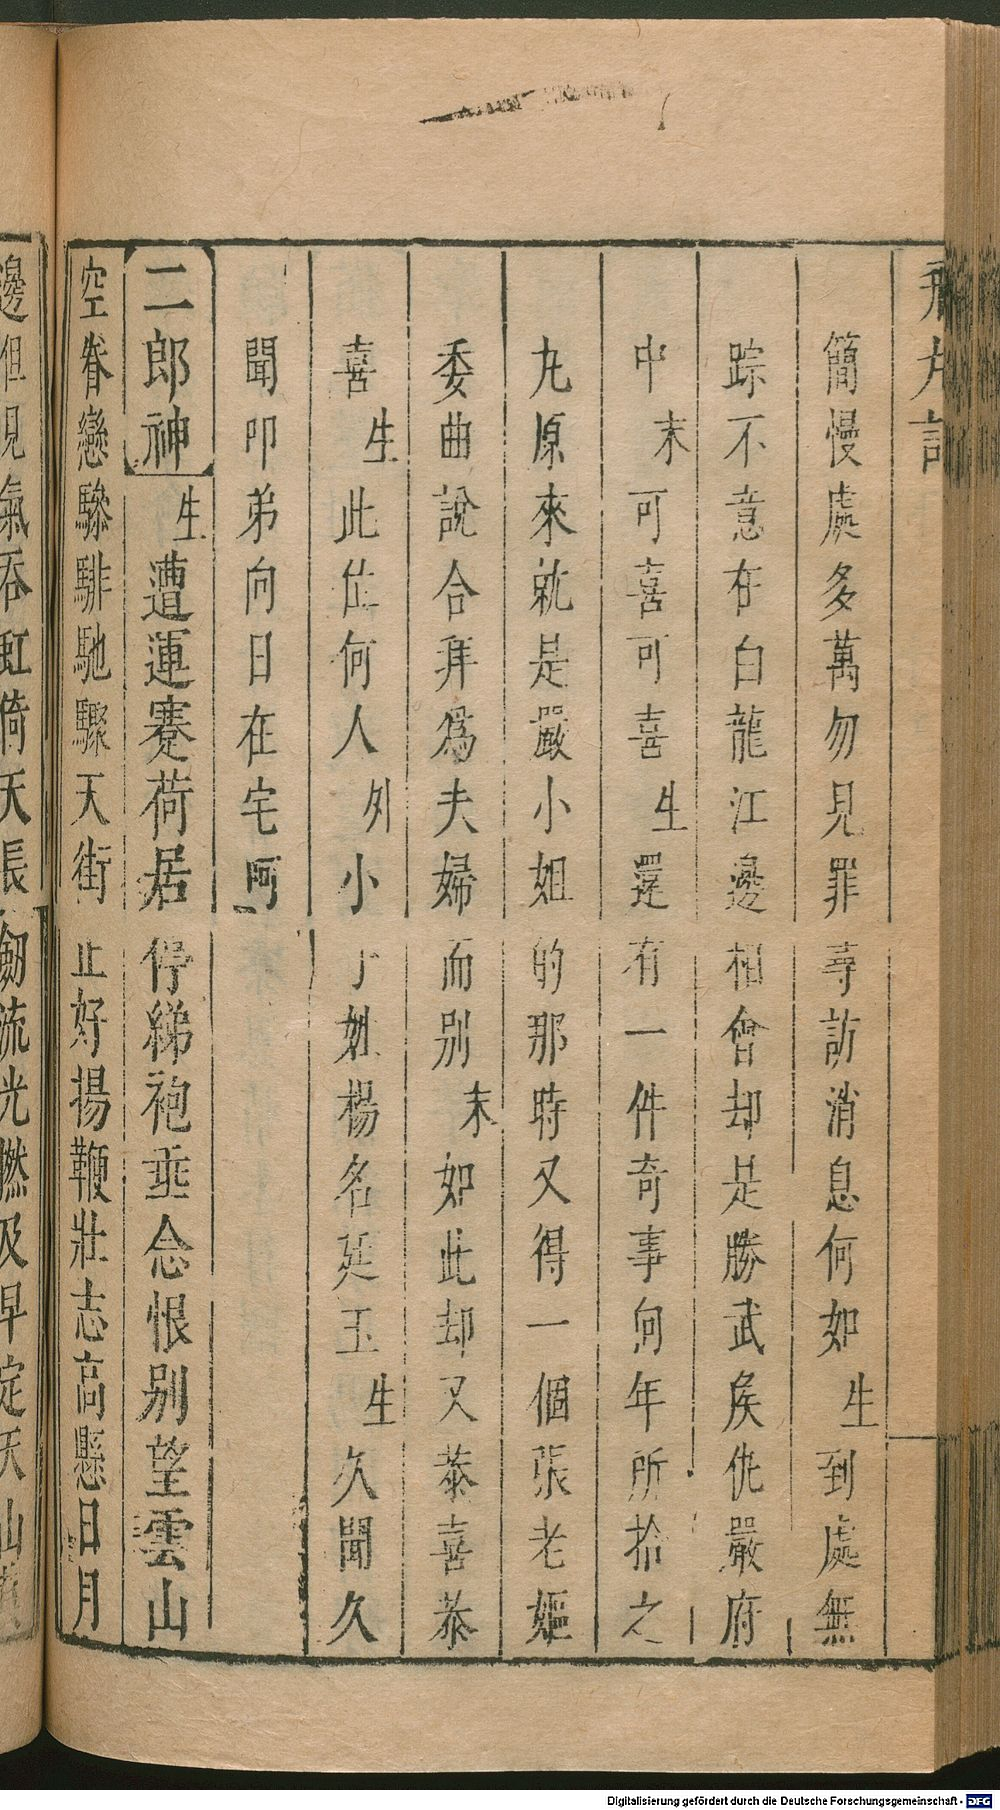 飛丸記
簡慢處多萬勿見罪尋訪消息何如生到處無
踪不意在白龍江邊相會却是勝武矦仇嚴府
中末可喜可喜生還有一件奇事向年所拾之
丸原來就是嚴小姐的那時又得一個張老嫗
委曲說合拜為夫婦而別末如此却又恭喜恭
喜生此位何人外小子姓楊名延玉生久聞久
聞叩弟向日在宅阿
二郎神生遭運蹇荷居停綈袍垂念恨别望雲山
空眷戀驂騑馳驟天街止好揚鞭壯志高懸日月
邊但見氣吞虹倚天長劒流光撚及早定天山
Digitalisierung gefördert durch die Deutsche Forschungsgemeinschaft - DFG